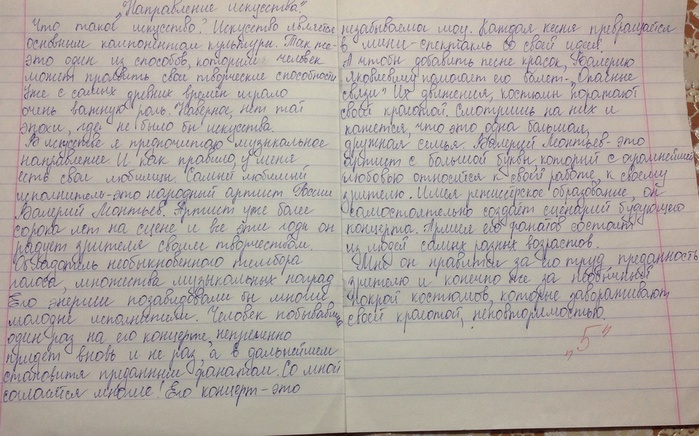 "Направление искусства"
Что такое искусство? Искусство является
основным компонентом культуры. Так же-
это один из способов, которыми человек
может проявить свои творческие способности
уже с самых древних времён играло
очень важную роль. Наверное, нет той
эпохи, где не было бы искусства.
В искусстве я предпочитаю музыкальное
направление И как правило, у меня
есть свои любимцы. Самый любимый
исполнитель-это народный артист России
Валерий Леонтьев. Артист уже более
сорока лет на сцене и все эти годы он
радует зрителя своим творчеством.
Обладатель необыкновенного тембора
голоса, множества музыкальных наград.
Его энергии позавидовали бы многие
молодые исполнители. Человек побывавший
один раз на его концерте, непременно
придет вновь и не раз, а в дальнейшем
становится преданным фанатом. Со мной
согласятся многие! Его концерт-это
незабываемое шоу. Каждая песня превращается
в мини-спектакль со своей идеей.
А чтобы добавить песне красок, Валерию
Яковлевичу помогает его балет-"Опасные
связи" Их движения, костюмы поражают
своей красотой. Смотришь на них и
кажется, что это одна большая,
дружная семья. Валерий Леонтьев-это
артист с большой буквы который с огромнейшей
любовью относится к своей работе, к своему
зрителю. Имея режиссёрское образование, он
самостоятельно создаёт сценарий будущего
концерта. Армия его фанатов состоит
из людей самых разных возрастов.
Мне он нравится за его труд преданность
зрителю и конечно же за необычный
покрой костюмов, которые завораживают
своей красотой, неповторимостью.
"5"